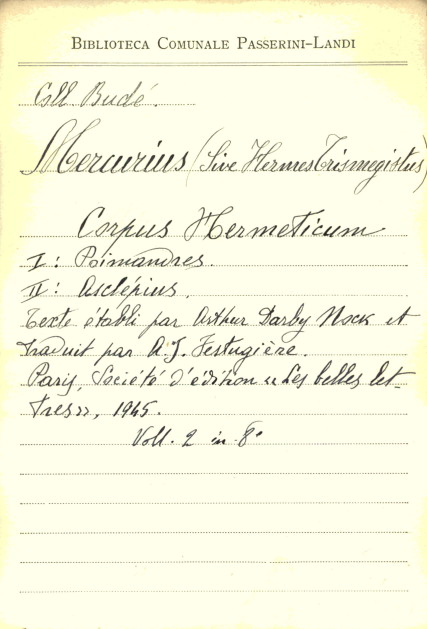 BIBLIOTECA COMUNALE PASSERINI-LANDI
Coll. Budé.
Mercurius (sive Hermes Trismegistus)
Corpus Hermeticum
I: Poimandres.
II: Asclépius.
Texte établi par Arthur Darby Nock et
traduit par A. J. Festugière.
Paris, Société d'édition «Les belles let-
tres», 1945.
Voll. 2 in 8°